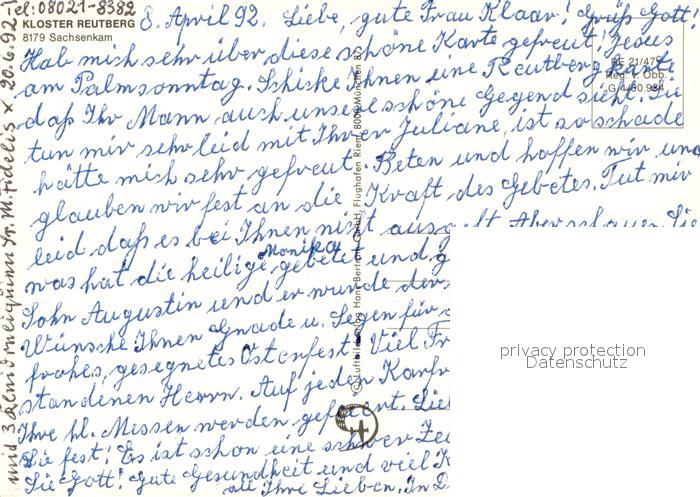 Tel.: 08021-8382
KLOSTER REUTBERG
8179 Sachsenkam
8. April 92. Liebe, gute Frau Klaar! Grüß Gott!
Hab mich sehr über diese schöne Karte gefreut! Jesus
am Palmsonntag. Schicke Ihnen eine Reutberg
daß Ihr Mann auch unsere schöne Gegend sieht. Sie
tun mir sehr leid mit Ihrer Juliane, ist so schade
hätte mich sehr gefreut. Beten und hoffen wir und
glauben wir fest an die Kraft des Gebetes. Tut mir
leid daß es bei Ihnen nicht Aber schauen Sie
was hat die heilige Monika gebetet und
Sohn Augustin und er wurde der
Wünsche Ihnen Gnade u. Segen für
frohes, gesegnetes Osterfest! Viel
standenen Herrn. Auf jeden
Ihre hl. Messen werden gefeiert.
Sie fest! Es ist schon eine schwer
Sie Gott! Gute Gesundheit und viel
alle Ihre Lieben. In
BE 21/475
Reg. v. Obb.
G 4430.934
© Luftbildverlag Hans Bertram GmbH, Flughafen Riem, 8000 München 87
und Sr. M. Fidelis x 20.6.92
privacy protection
Datenschutz